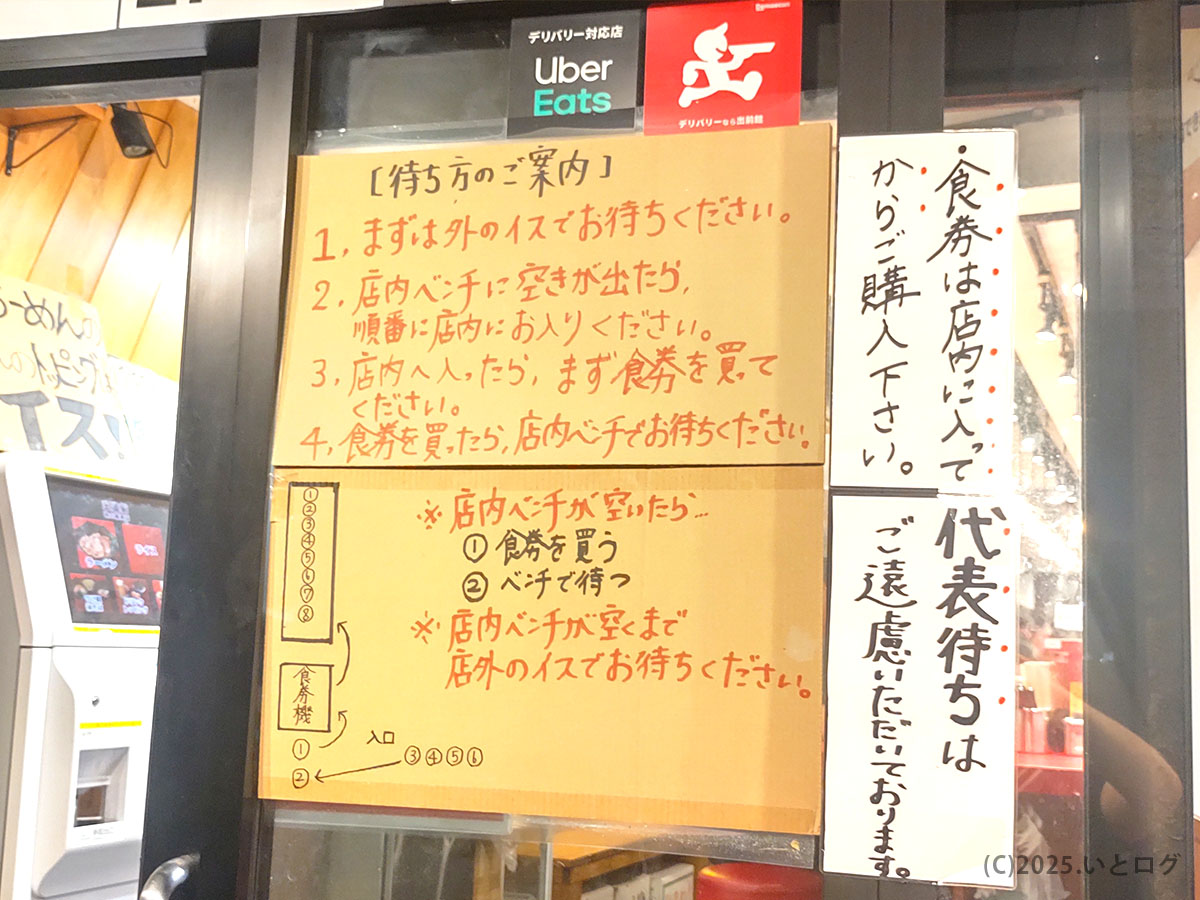 デリバリー対応店
Uber
Eats
デリバリーなら出前館
[待ち方のご案内]
1, まずは外のイスでお待ちください。
2, 店内ベンチに空きが出たら,
順番に店内にお入りください。
3, 店内へ入ったら, まず食券を買って
ください。
4, 食券を買ったら, 店内ベンチでお待ちください。
①
②
③
④
⑤
⑥
⑦
⑧
食券機
①
②
入口
③④⑤⑥
※店内ベンチが空いたら…
①食券を買う
②ベンチで待つ
※店内ベンチが空くまで
店外のイスでお待ちください。
・食券は店内に入って
からご購入下さい。
代表待ちは
ご遠慮いただいております。
らーめんの
のトッピング
イス!!
(C)2025.いとログ